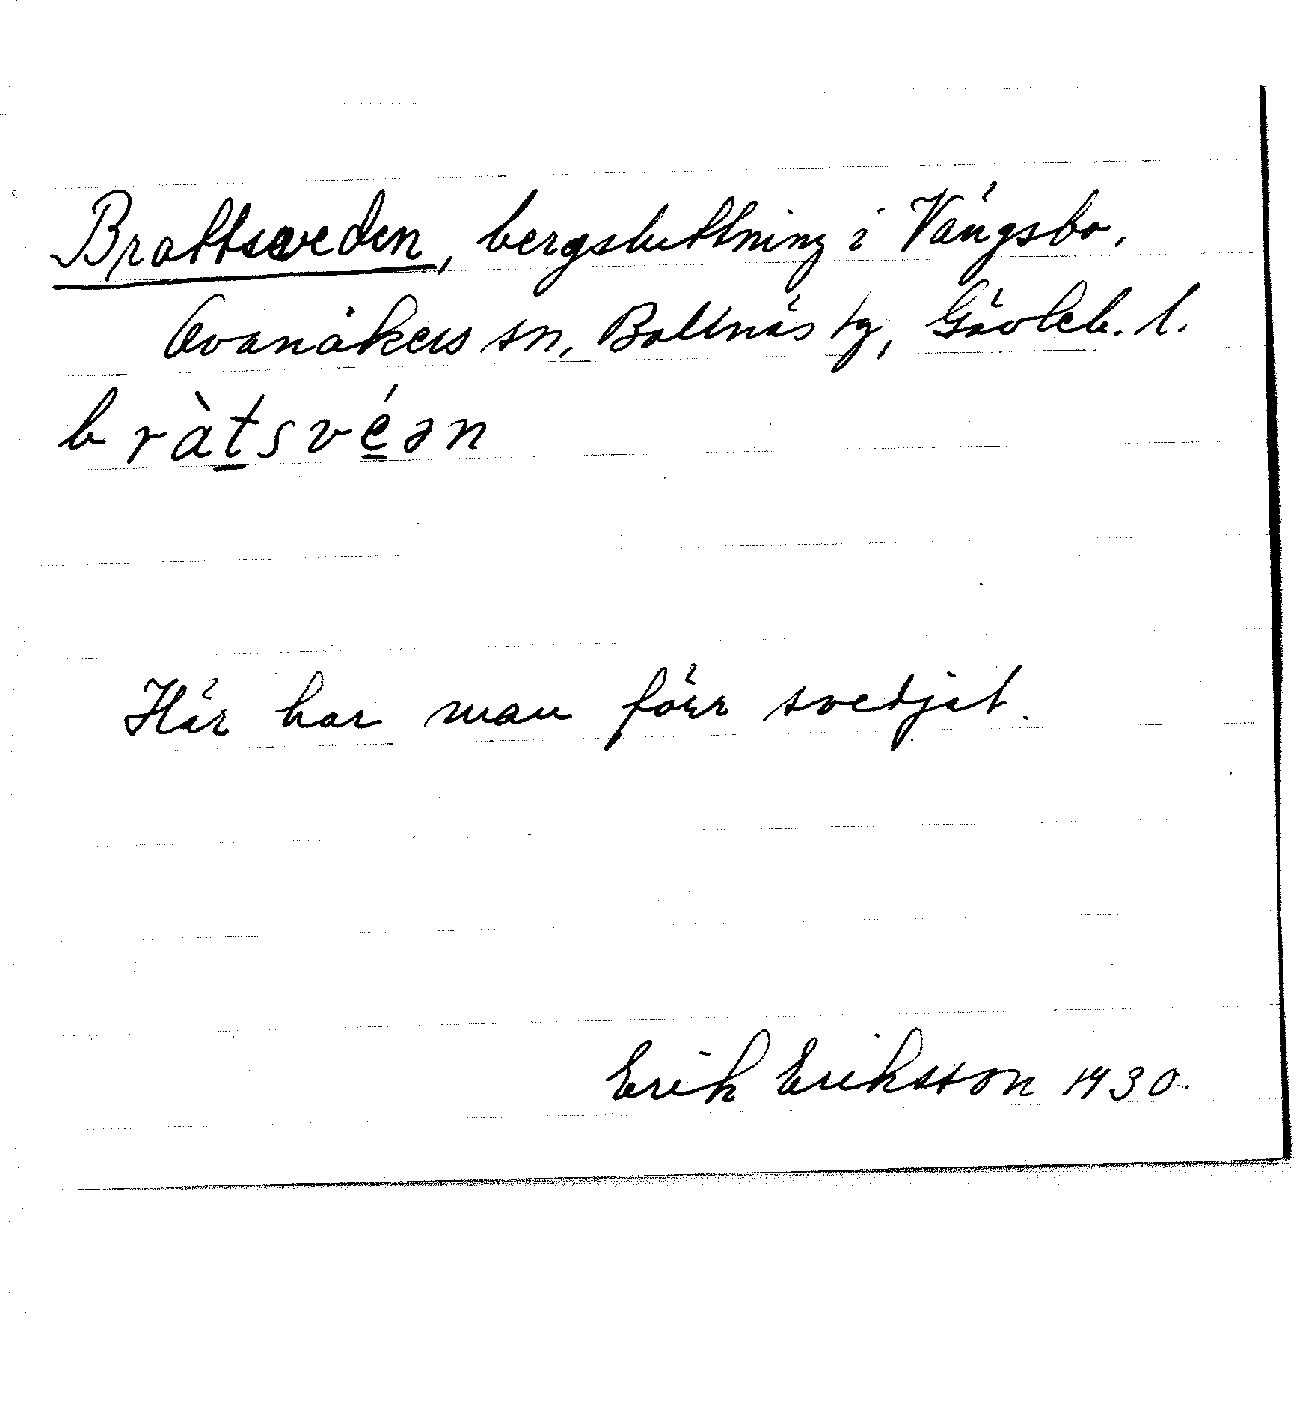 Brattsveden, bergsluttning i Vängsbo,
Ovanåkers sn, Bollnäs tg, Gävleb. l.
bràt̲své̲ən
Här har man förr svedjat.
Erik Eriksson 1930.